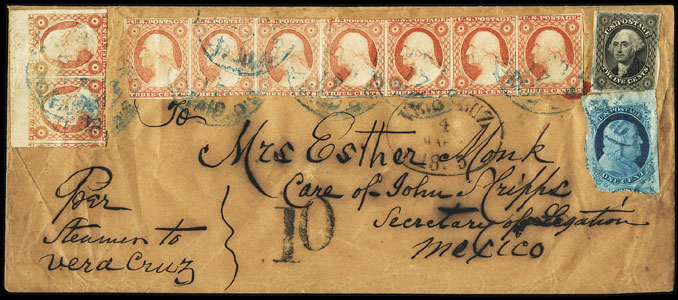 U.S. POSTAGE
THREE CENTS
U.S. POSTAGE
THREE CENTS
U.S. POSTAGE
THREE CENTS
U.S. POSTAGE
THREE CENTS
U.S. POSTAGE
THREE CENTS
U.S. POSTAGE
THREE CENTS
U.S. POSTAGE
THREE CENTS
U.S. POSTAGE
TWELVE CENTS
U.S. POSTAGE
ONE CENT
PAID
VERA CRUZ
4
To
Mrs Esther Monk
Care of John Scripps
Secretary of Legation
Mexico
10
Per
Steamer to
Vera Cruz